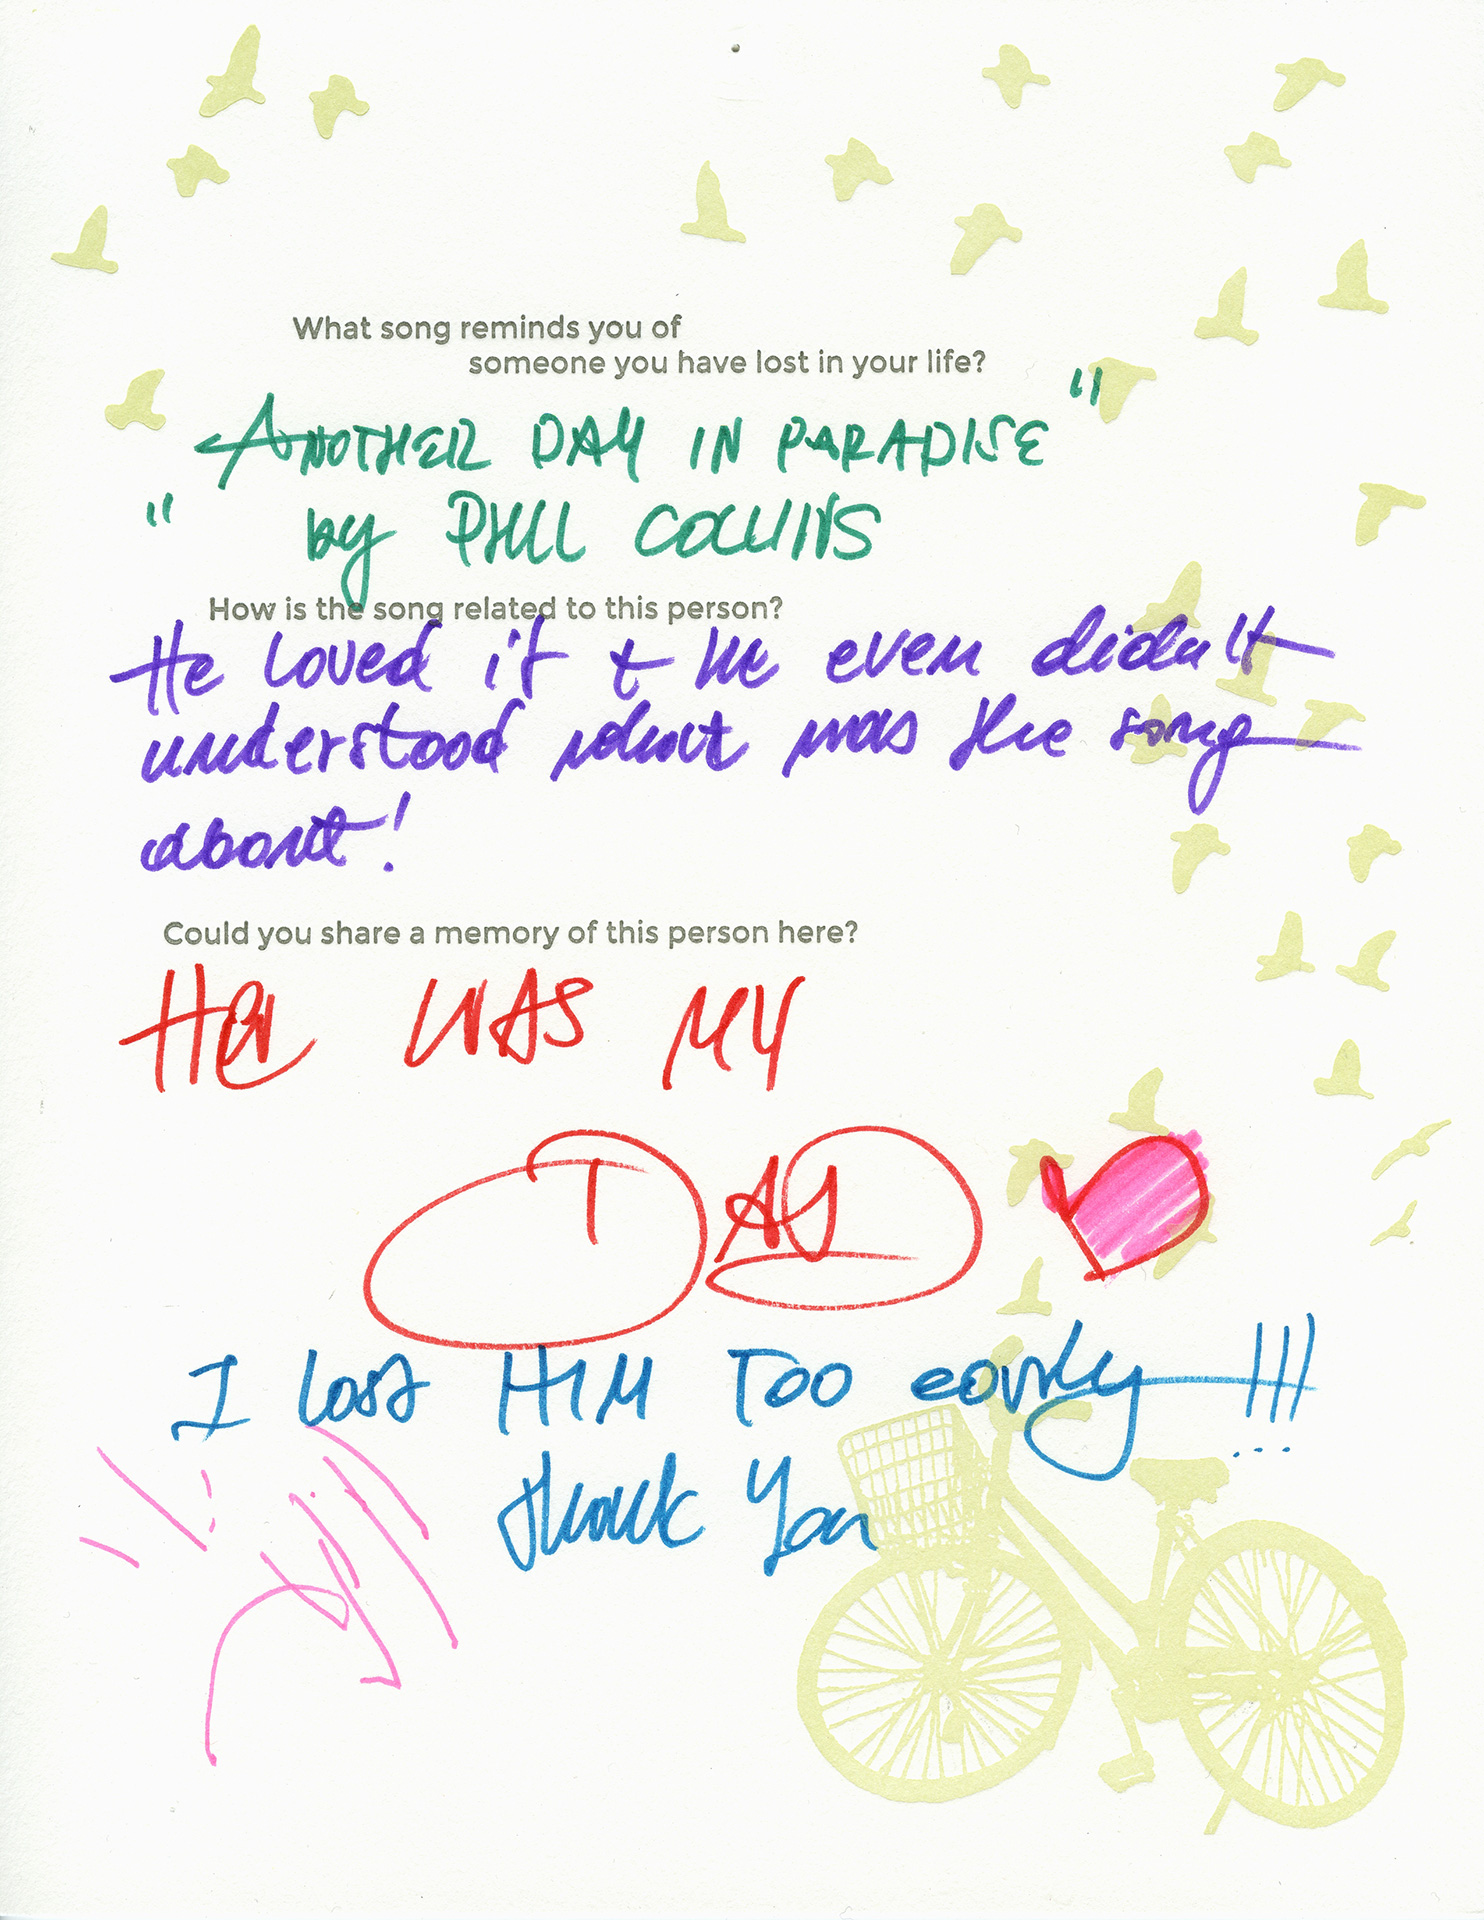 What song reminds you of
someone you have lost in your life?
"ANOTHER DAY IN PARADISE"
by PHIL COLLINS
How is the song related to this person?
He loved it & he even didn't
understood what was the song
about!
Could you share a memory of this person here?
He WAS MY
DAD
I lost HIM Too early !!!...
thank You